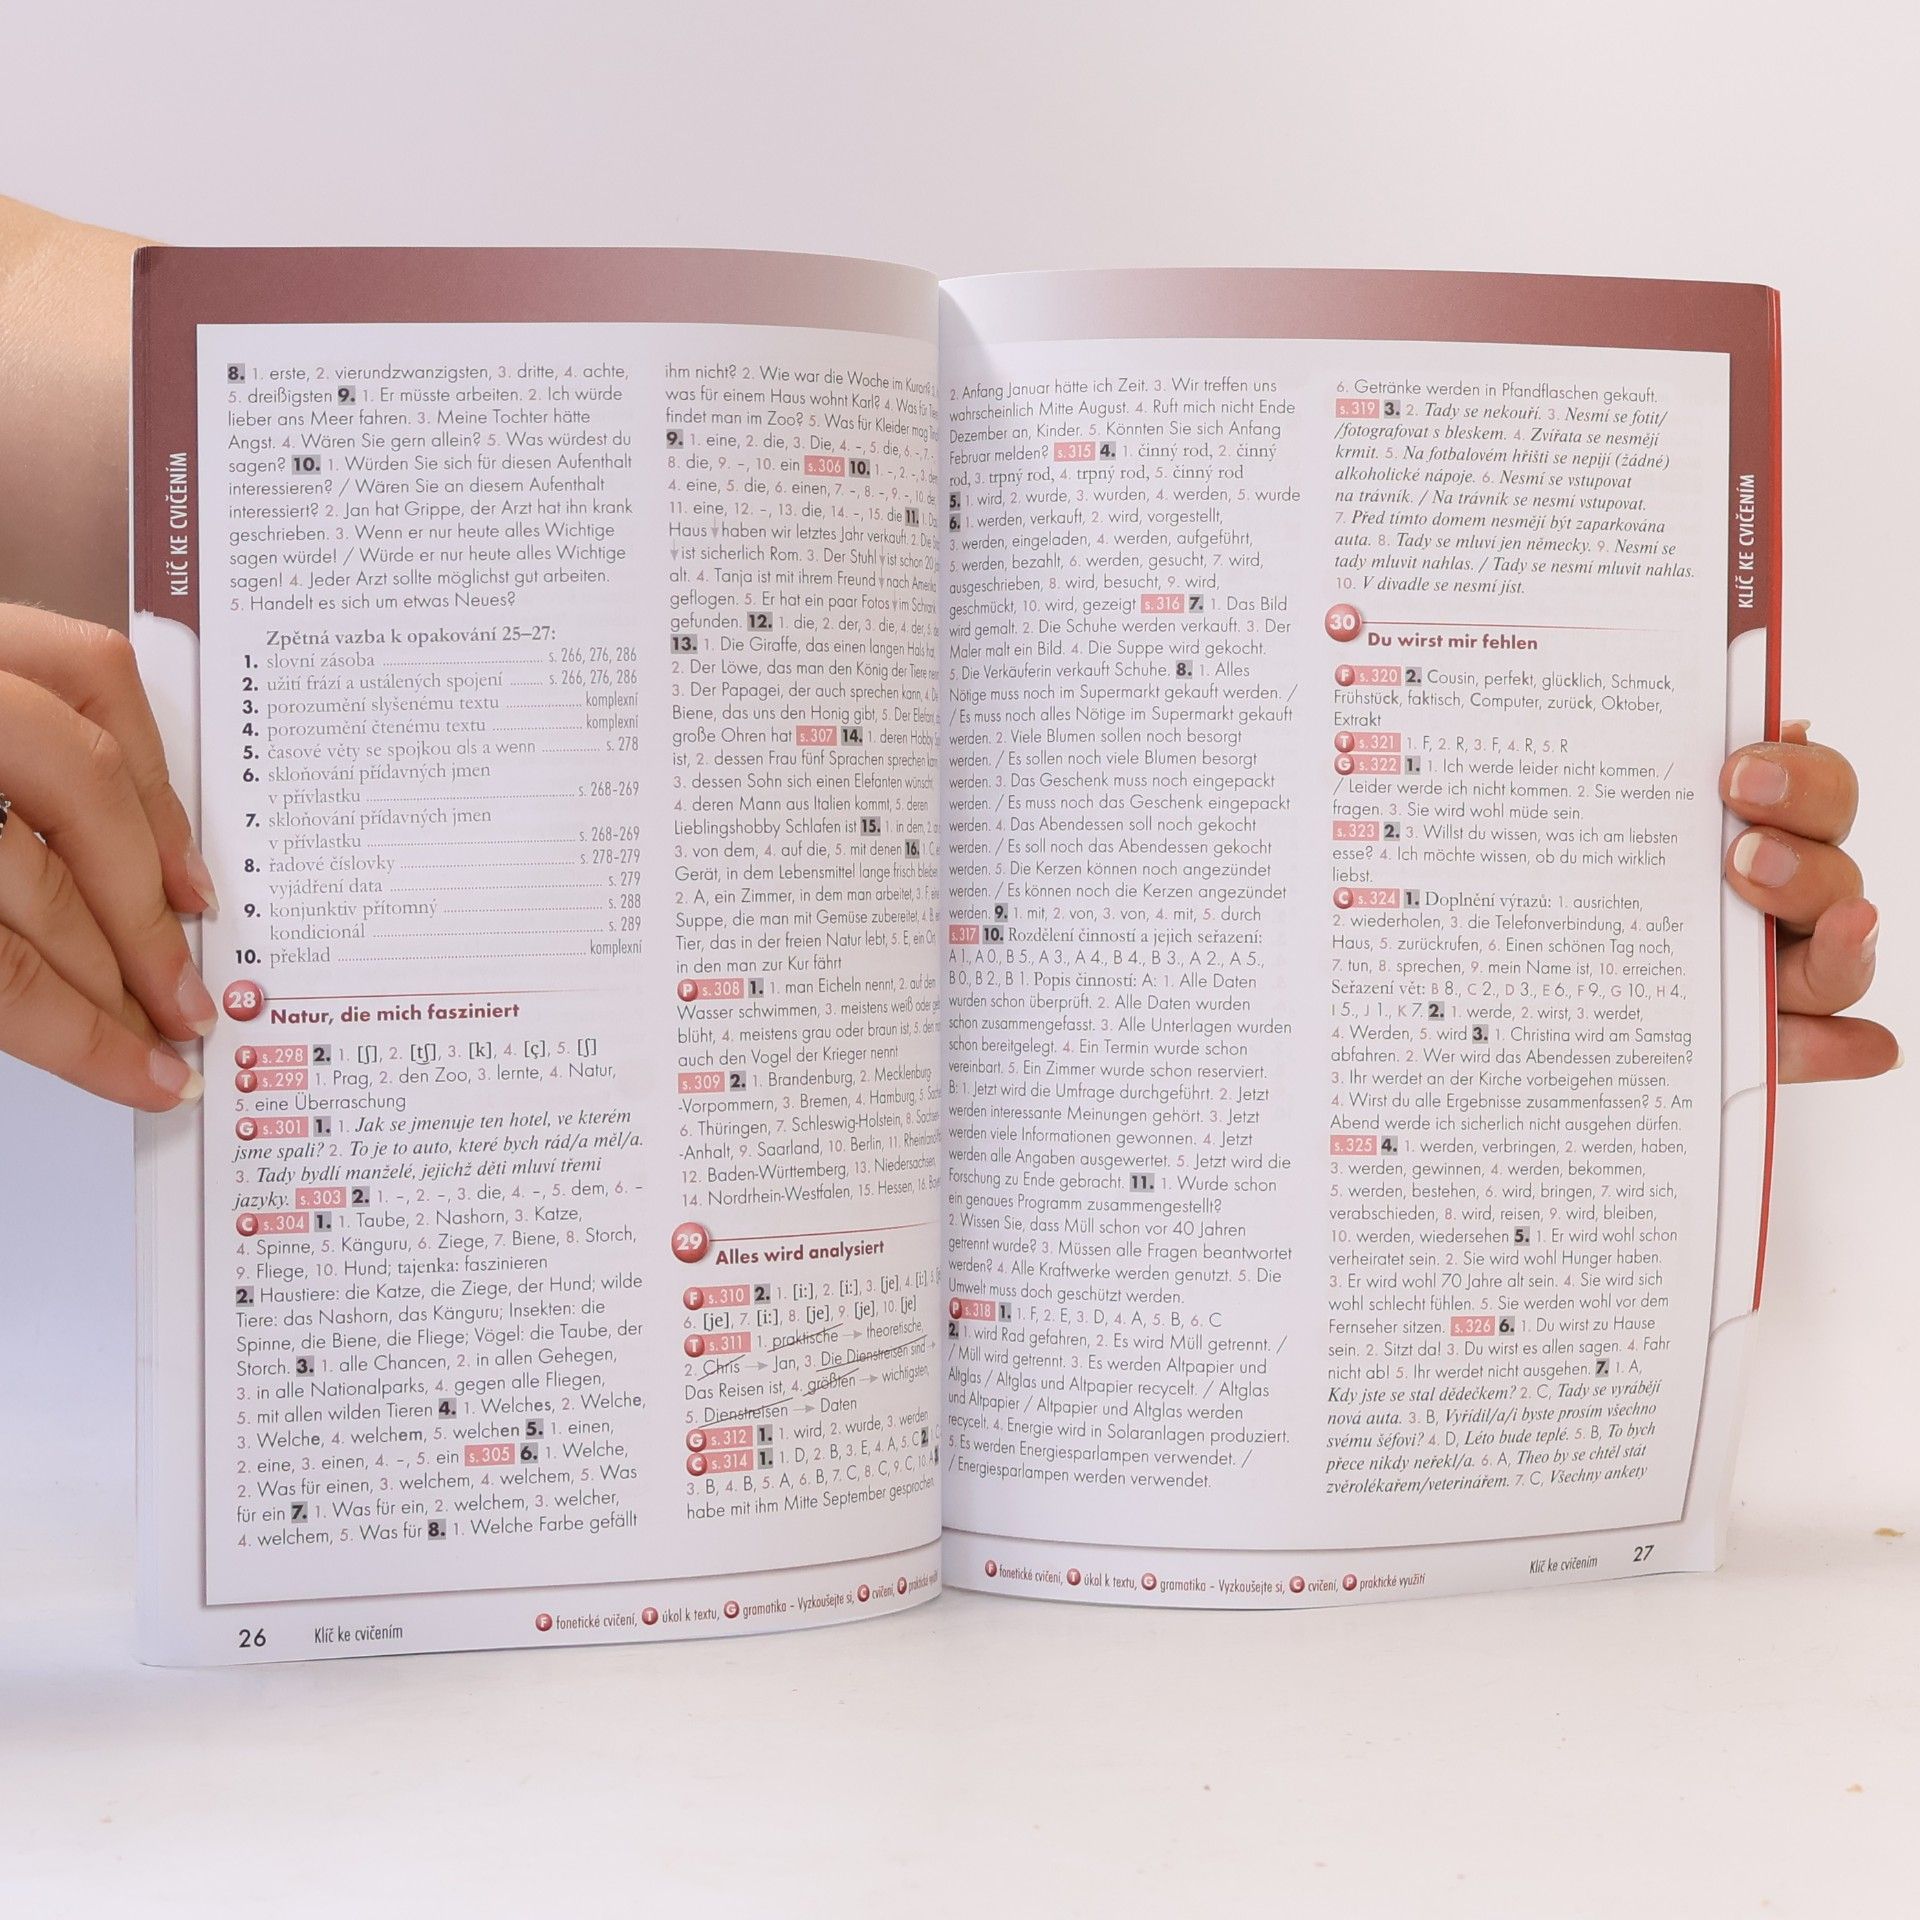 KLÍČ KE CVIČENÍM
8. 1. erste, 2. vierundzwanzigsten, 3. dritte, 4. achte,
5. dreißigsten 9. 1. Er müsste arbeiten. 2. Ich würde
lieber ans Meer fahren. 3. Meine Tochter hätte
Angst. 4. Wären Sie gern allein? 5. Was würdest du
sagen? 10. 1. Würden Sie sich für diesen Aufenthalt
interessieren? / Wären Sie an diesem Aufenthalt
interessiert? 2. Jan hat Grippe, der Arzt hat ihn krank
geschrieben. 3. Wenn er nur heute alles Wichtige
sagen würde! / Würde er nur heute alles Wichtige
sagen! 4. Jeder Arzt sollte möglichst gut arbeiten.
5. Handelt es sich um etwas Neues?
Zpětná vazba k opakování 25–27:
1. slovní zásoba ........ s. 266, 276, 286
2. užití frází a ustálených spojení ........ s. 266, 276, 286
3. porozumění slyšenému textu ........ komplexní
4. porozumění čtenému textu ........ komplexní
5. časové věty se spojkou als a wenn ........ s. 278
6. skloňování přídavných jmen
v přívlastku ........ s. 268-269
7. skloňování přídavných jmen
v přívlastku ........ s. 268-269
8. řadové číslovky ........ s. 278-279
vyjádření data ........ s. 279
9. konjunktiv přítomný ........ s. 288
kondicionál ........ s. 289
10. překlad ........ komplexní
28 Natur, die mich fasziniert
F s. 298 2. 1. [ʃ], 2. [tʃ], 3. [k], 4. [ç], 5. [ʃ]
T s. 299 1. Prag, 2. den Zoo, 3. lernte, 4. Natur,
5. eine Überraschung
G s. 301 1. 1. Jak se jmenuje ten hotel, ve kterém
jsme spali? 2. To je to auto, které bych rád/a měl/a.
3. Tady bydlí manželé, jejichž děti mluví třemi
jazyky. s. 303 2. 1. –, 2. –, 3. die, 4. –, 5. dem, 6. –
C s. 304 1. 1. Taube, 2. Nashorn, 3. Katze,
4. Spinne, 5. Känguru, 6. Ziege, 7. Biene, 8. Storch,
9. Fliege, 10. Hund; tajenka: faszinieren
2. Haustiere: die Katze, die Ziege, der Hund; wilde
Tiere: das Nashorn, das Känguru; Insekten: die
Spinne, die Biene, die Fliege; Vögel: die Taube, der
Storch. 3. 1. alle Chancen, 2. in allen Gehegen,
3. in alle Nationalparks, 4. gegen alle Fliegen,
5. mit allen wilden Tieren 4. 1. Welches, 2. Welche,
3. Welche, 4. welchem, 5. welchen 5. 1. einen,
2. eine, 3. einen, 4. –, 5. ein s. 305 6. 1. Welche,
2. Was für einen, 3. welchem, 4. welchem, 5. Was
für ein 7. 1. Was für ein, 2. welchem, 3. welcher,
4. welchem, 5. Was für 8. 1. Welche Farbe gefällt
ihm nicht? 2. Wie war die Woche im Kurort?
was für einem Haus wohnt Karl? 4. Was für
findet man im Zoo? 5. Was für Kleider mag
9. 1. eine, 2. die, 3. Die, 4. –, 5. die, 6. –, 7. –
8. die, 9. –, 10. ein s. 306 10. 1. –, 2. –, 3.
4. eine, 5. die, 6. einen, 7. –, 8. –, 9. –, 10. der
11. eine, 12. –, 13. die, 14. –, 15. die 11. 1.
Haus haben wir letztes Jahr verkauft. 2. Die
ist sicherlich Rom. 3. Der Stuhl ist schon 20
alt. 4. Tanja ist mit ihrem Freund nach Amerika
geflogen. 5. Er hat ein paar Fotos im Schrank
gefunden. 12. 1. die, 2. der, 3. die, 4. der, 5.
13. 1. Die Giraffe, das einen langen Hals hat,
2. Der Löwe, das man den König der Tiere
3. Der Papagei, der auch sprechen kann, 4.
Biene, das uns den Honig gibt, 5. Der Elefant,
große Ohren hat s. 307 14. 1. deren Hobby
ist, 2. dessen Frau fünf Sprachen sprechen kann
3. dessen Sohn sich einen Elefanten wünscht,
4. deren Mann aus Italien kommt, 5. deren
Lieblingshobby Schlafen ist 15. 1. in dem, 2.
3. von dem, 4. auf die, 5. mit denen 16. 1. C,
Gerät, in dem Lebensmittel lange frisch bleiben
2. A, ein Zimmer, in dem man arbeitet, 3. F, eine
Suppe, die man mit Gemüse zubereitet, 4. B,
Tier, das in der freien Natur lebt, 5. E, ein Ort
in den man zur Kur fährt
P s. 308 1. 1. man Eicheln nennt, 2. auf dem
Wasser schwimmen, 3. meistens weiß oder
blüht, 4. meistens grau oder braun ist, 5. den
auch den Vogel der Krieger nennt
s. 309 2. 1. Brandenburg, 2. Mecklenburg
-Vorpommern, 3. Bremen, 4. Hamburg, 5.
6. Thüringen, 7. Schleswig-Holstein, 8. Sachsen-
-Anhalt, 9. Saarland, 10. Berlin, 11.
12. Baden-Württemberg, 13. Niedersachsen,
14. Nordrhein-Westfalen, 15. Hessen, 16.
29 Alles wird analysiert
F s. 310 2. 1. [i:], 2. [i:], 3. [je], 4. [i:], 5.
6. [je], 7. [i:], 8. [je], 9. [je], 10. [je]
T s. 311 1. praktische → theoretische,
2. Chris → Jan, 3. Die Dienstreisen sind →
Das Reisen ist, 4. größten → wichtigsten,
5. Dienstreisen → Daten
G s. 312 1. 1. wird, 2. wurde, 3. werden
C s. 314 1. 1. D, 2. B, 3. E, 4. A, 5. C 2.
3. B, 4. B, 5. A, 6. B, 7. C, 8. C, 9. C, 10. A
habe mit ihm Mitte September gesprochen.
26 Klíč ke cvičením
F fonetické cvičení, T úkol k textu, G gramatika – Vyzkoušejte si, C cvičení, P praktické využití
2. Anfang Januar hätte ich Zeit. 3. Wir treffen uns
wahrscheinlich Mitte August. 4. Ruft mich nicht Ende
Dezember an, Kinder. 5. Könnten Sie sich Anfang
Februar melden? s. 315 4. 1. činný rod, 2. činný
rod, 3. trpný rod, 4. trpný rod, 5. činný rod
5. 1. wird, 2. wurde, 3. wurden, 4. werden, 5. wurde
6. 1. werden, verkauft, 2. wird, vorgestellt,
3. werden, eingeladen, 4. werden, aufgeführt,
5. werden, bezahlt, 6. werden, gesucht, 7. wird,
ausgeschrieben, 8. wird, besucht, 9. wird,
geschmückt, 10. wird, gezeigt s. 316 7. 1. Das Bild
wird gemalt. 2. Die Schuhe werden verkauft. 3. Der
Maler malt ein Bild. 4. Die Suppe wird gekocht.
5. Die Verkäuferin verkauft Schuhe. 8. 1. Alles
Nötige muss noch im Supermarkt gekauft werden. /
/ Es muss noch alles Nötige im Supermarkt gekauft
werden. 2. Viele Blumen sollen noch besorgt
werden. / Es sollen noch viele Blumen besorgt
werden. 3. Das Geschenk muss noch eingepackt
werden. / Es muss noch das Geschenk eingepackt
werden. 4. Das Abendessen soll noch gekocht
werden. / Es soll noch das Abendessen gekocht
werden. 5. Die Kerzen können noch angezündet
werden. / Es können noch die Kerzen angezündet
werden. 9. 1. mit, 2. von, 3. von, 4. mit, 5. durch
s. 317 10. Rozdělení činností a jejich seřazení:
A 1., A 0., B 5., A 3., A 4., B 4., B 3., A 2., A 5.,
B 0., B 2., B 1. Popis činností: A: 1. Alle Daten
wurden schon überprüft. 2. Alle Daten wurden
schon zusammengefasst. 3. Alle Unterlagen wurden
schon bereitgelegt. 4. Ein Termin wurde schon
vereinbart. 5. Ein Zimmer wurde schon reserviert.
B: 1. Jetzt wird die Umfrage durchgeführt. 2. Jetzt
werden interessante Meinungen gehört. 3. Jetzt
werden viele Informationen gewonnen. 4. Jetzt
werden alle Angaben ausgewertet. 5. Jetzt wird die
Forschung zu Ende gebracht. 11. 1. Wurde schon
ein genaues Programm zusammengestellt?
2. Wissen Sie, dass Müll schon vor 40 Jahren
getrennt wurde? 3. Müssen alle Fragen beantwortet
werden? 4. Alle Kraftwerke werden genutzt. 5. Die
Umwelt muss doch geschützt werden.
P s. 318 1. 1. F, 2. E, 3. D, 4. A, 5. B, 6. C
2. 1. wird Rad gefahren, 2. Es wird Müll getrennt. /
/ Müll wird getrennt. 3. Es werden Altpapier und
Altglas / Altglas und Altpapier recycelt. / Altglas
und Altpapier / Altpapier und Altglas werden
recycelt. 4. Energie wird in Solaranlagen produziert.
5. Es werden Energiesparlampen verwendet. /
/ Energiesparlampen werden verwendet.
6. Getränke werden in Pfandflaschen gekauft.
s. 319 3. 2. Tady se nekouří. 3. Nesmí se fotit/
/fotografovat s bleskem. 4. Zvířata se nesmějí
krmit. 5. Na fotbalovém hřišti se nepijí (žádné)
alkoholické nápoje. 6. Nesmí se vstupovat
na trávník. / Na trávník se nesmí vstupovat.
7. Před tímto domem nesmějí být zaparkována
auta. 8. Tady se mluví jen německy. 9. Nesmí se
tady mluvit nahlas. / Tady se nesmí mluvit nahlas.
10. V divadle se nesmí jíst.
30 Du wirst mir fehlen
F s. 320 2. Cousin, perfekt, glücklich, Schmuck,
Frühstück, faktisch, Computer, zurück, Oktober,
Extrakt
T s. 321 1. F, 2. R, 3. F, 4. R, 5. R
G s. 322 1. 1. Ich werde leider nicht kommen. /
/ Leider werde ich nicht kommen. 2. Sie werden nie
fragen. 3. Sie wird wohl müde sein.
s. 323 2. 3. Willst du wissen, was ich am liebsten
esse? 4. Ich möchte wissen, ob du mich wirklich
liebst.
C s. 324 1. Doplnění výrazů: 1. ausrichten,
2. wiederholen, 3. die Telefonverbindung, 4. außer
Haus, 5. zurückrufen, 6. Einen schönen Tag noch,
7. tun, 8. sprechen, 9. mein Name ist, 10. erreichen.
Seřazení vět: B 8., C 2., D 3., E 6., F 9., G 10., H 4.,
I 5., J 1., K 7. 2. 1. werde, 2. wirst, 3. werdet,
4. Werden, 5. wird 3. 1. Christina wird am Samstag
abfahren. 2. Wer wird das Abendessen zubereiten?
3. Ihr werdet an der Kirche vorbeigehen müssen.
4. Wirst du alle Ergebnisse zusammenfassen? 5. Am
Abend werde ich sicherlich nicht ausgehen dürfen.
s. 325 4. 1. werden, verbringen, 2. werden, haben,
3. werden, gewinnen, 4. werden, bekommen,
5. werden, bestehen, 6. wird, bringen, 7. wird sich,
verabschieden, 8. wird, reisen, 9. wird, bleiben,
10. werden, wiedersehen 5. 1. Er wird wohl schon
verheiratet sein. 2. Sie wird wohl Hunger haben.
3. Er wird wohl 70 Jahre alt sein. 4. Sie wird sich
wohl schlecht fühlen. 5. Sie werden wohl vor dem
Fernseher sitzen. s. 326 6. 1. Du wirst zu Hause
sein. 2. Sitzt da! 3. Du wirst es allen sagen. 4. Fahr
nicht ab! 5. Ihr werdet nicht ausgehen. 7. 1. A,
Kdy jste se stal dědečkem? 2. C, Tady se vyrábějí
nová auta. 3. B, Vyřídil/a/i byste prosím všechno
svému šéfovi? 4. D, Léto bude teplé. 5. B, To bych
přece nikdy neřekl/a. 6. A, Theo by se chtěl stát
zvěrolékařem/veterinářem. 7. C, Všechny ankety
KLÍČ KE CVIČENÍM
F fonetické cvičení, T úkol k textu, G gramatika – Vyzkoušejte si, C cvičení, P praktické využití
Klíč ke cvičením 27